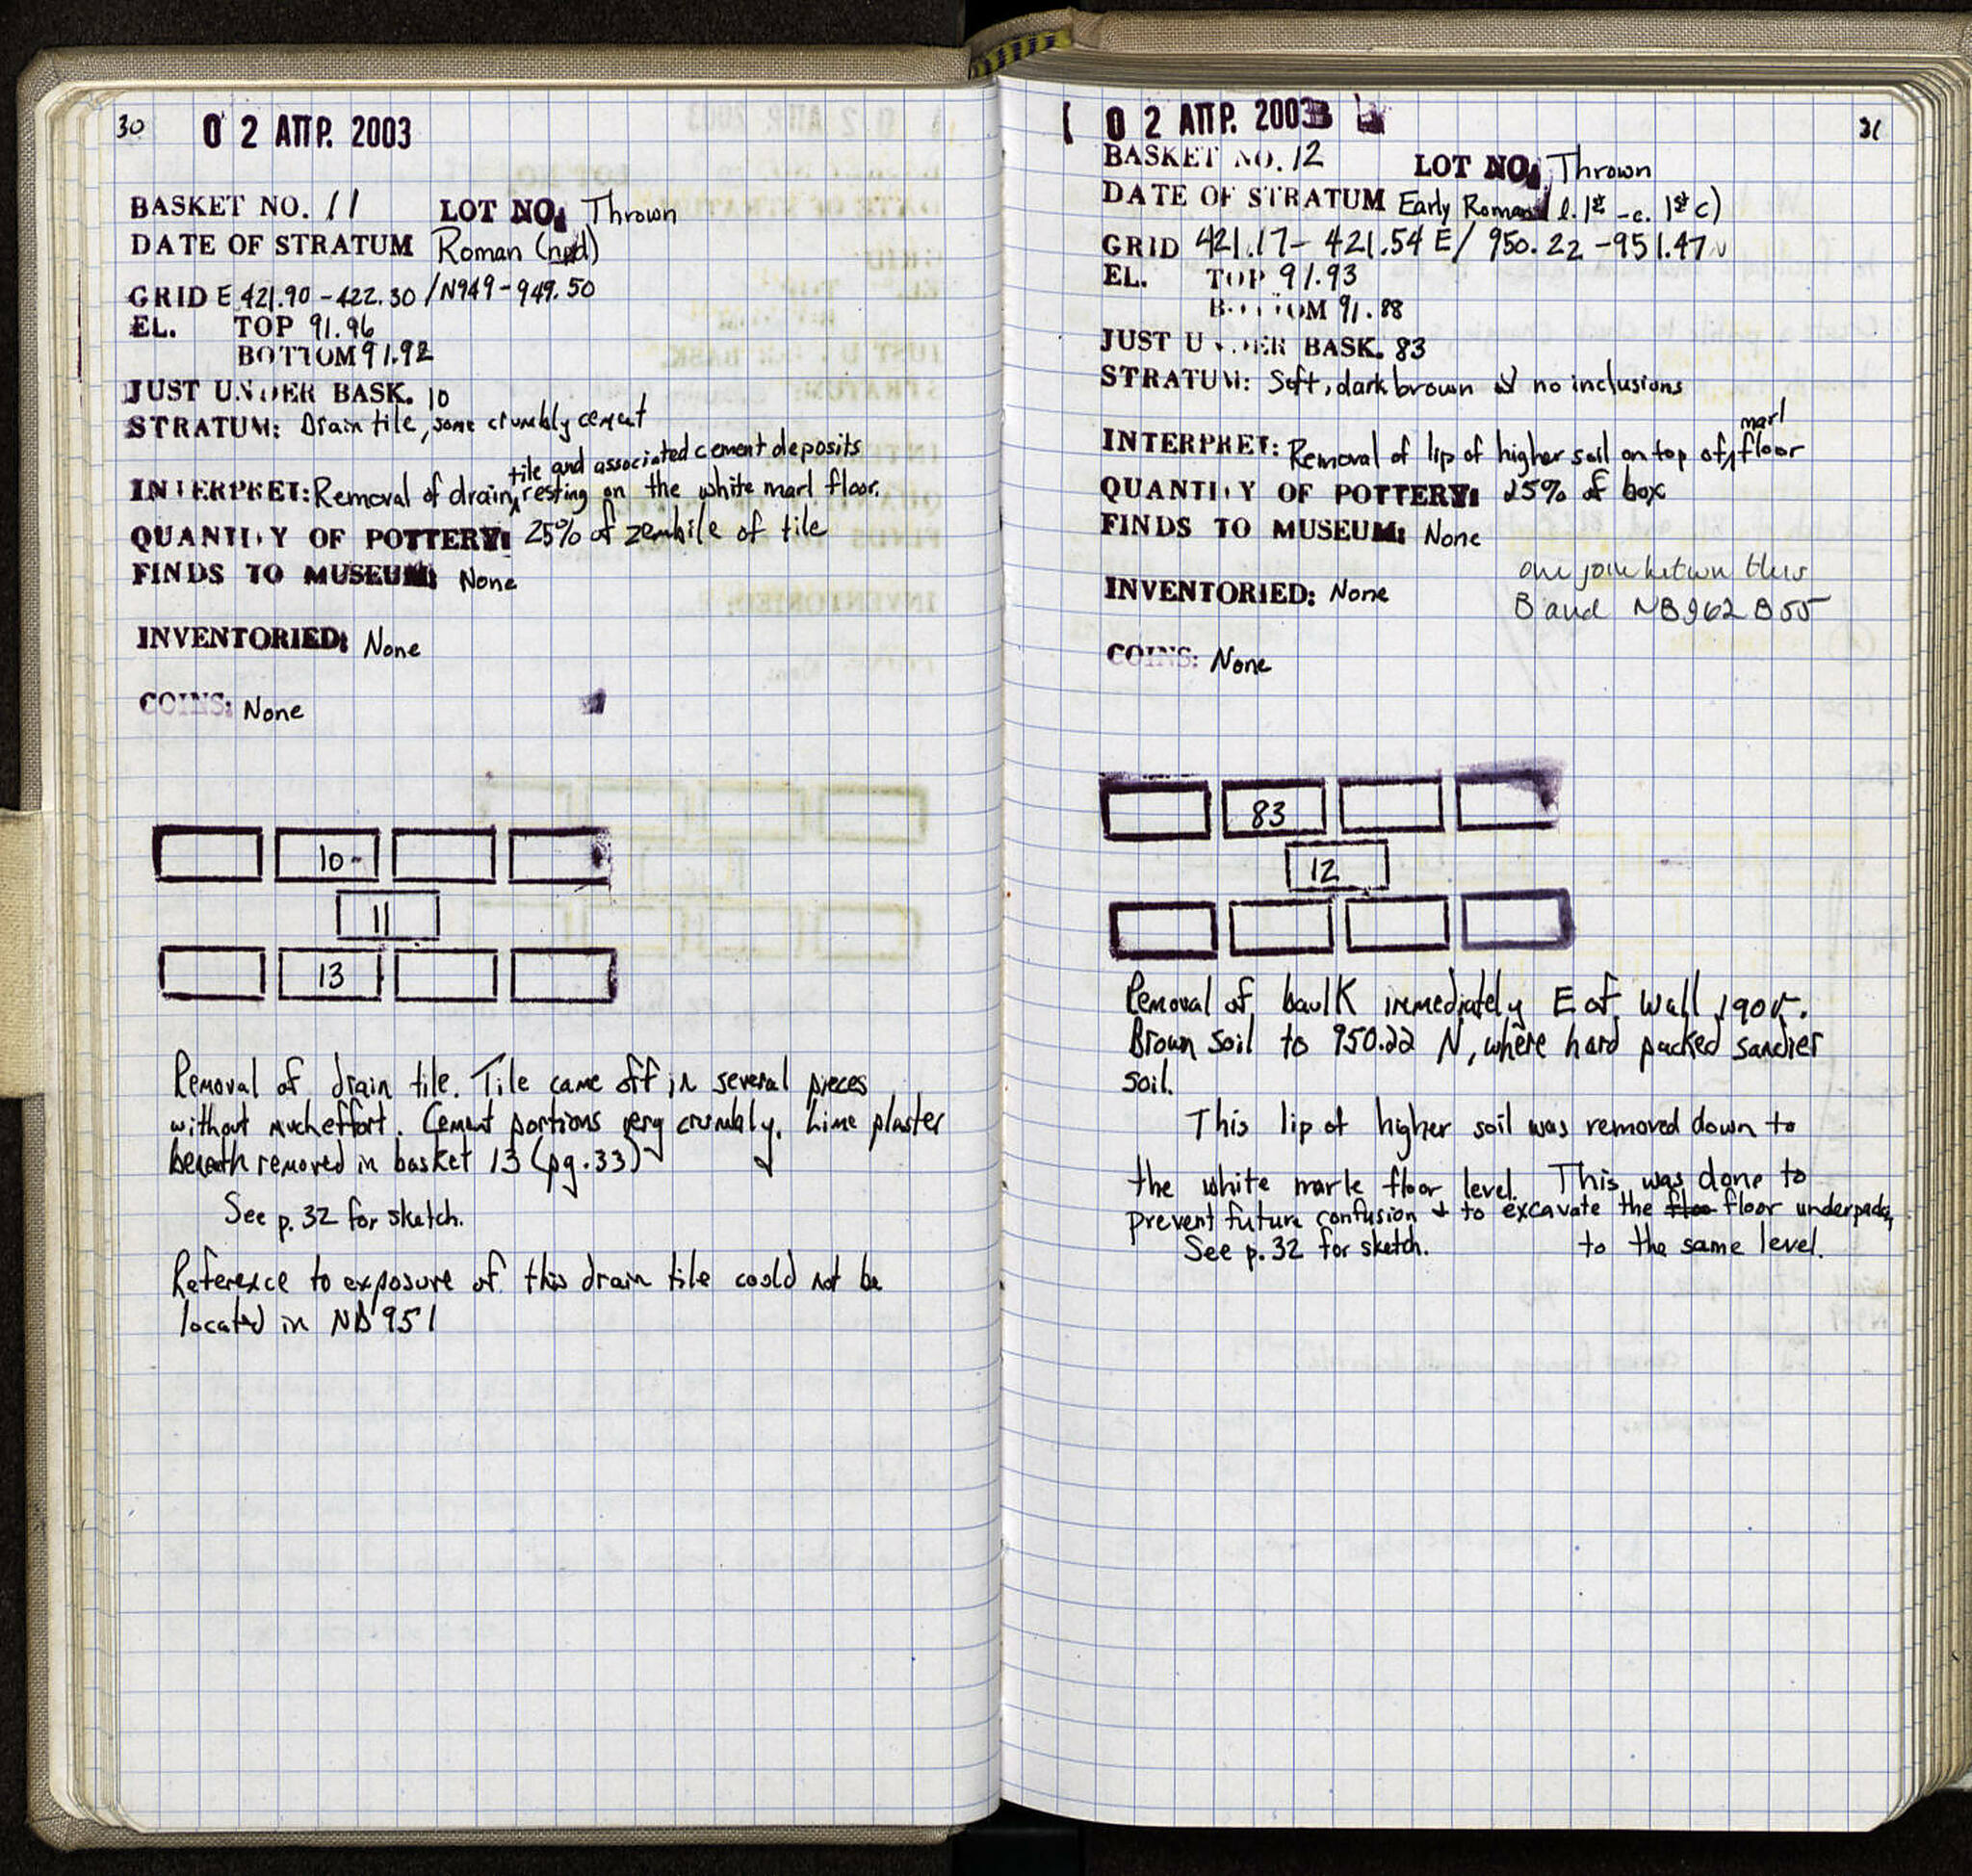 30
02 ΑΠΡ. 2003
BASKET NO. 11 LOT NO: Thrown
DATE OF STRATUM Roman (npd)
GRID E 421.90 - 422.30 / N949 - 949.50
EL. TOP 91.96
BOTTOM 91.92
JUST UNDER BASK. 10
STRATUM: Drain tile, some crumbly cement
tile and associated cement deposits
INTERPRET: Removal of drain ^ resting on the white marl floor.
QUANTITY OF POTTERY: 25% of zembile of tile
FINDS TO MUSEUM: None
INVENTORIED: None
COINS: None
10
11
13
Removal of drain tile. Tile came off in several pieces
without much effort. Cement portions very crumbly. Lime plaster
beneath removed in basket 13 (pg. 33)
See p. 32 for sketch.
Reference to exposure of this drain tile could not be
located in NB 951
31
02 ΑΠΡ. 2003
BASKET NO. 12 LOT NO: Thrown
DATE OF STRATUM Early Roman l. 1st - e. 1st c)
GRID 421.17 - 421.54 E / 950.22 - 951.47 N
EL. TOP 91.93
BOTTOM 91.88
JUST UNDER BASK. 83
STRATUM: Soft, dark brown no inclusions
marl
INTERPRET: Removal of lip of higher soil on top of ^ floor
QUANTITY OF POTTERY: 25% of box
FINDS TO MUSEUM: None
one join between this
B and NB962 B55
INVENTORIED: None
COINS: None
83
12
Removal of baulk immediately E of Wall 1905.
Brown soil to 950.22 N, where hard packed sandier
soil.
This lip of higher soil was removed down to
the white marle floor level. This was done to
prevent future confusion + to excavate the floo floor underpacking
See p. 32 for sketch. to the same level.